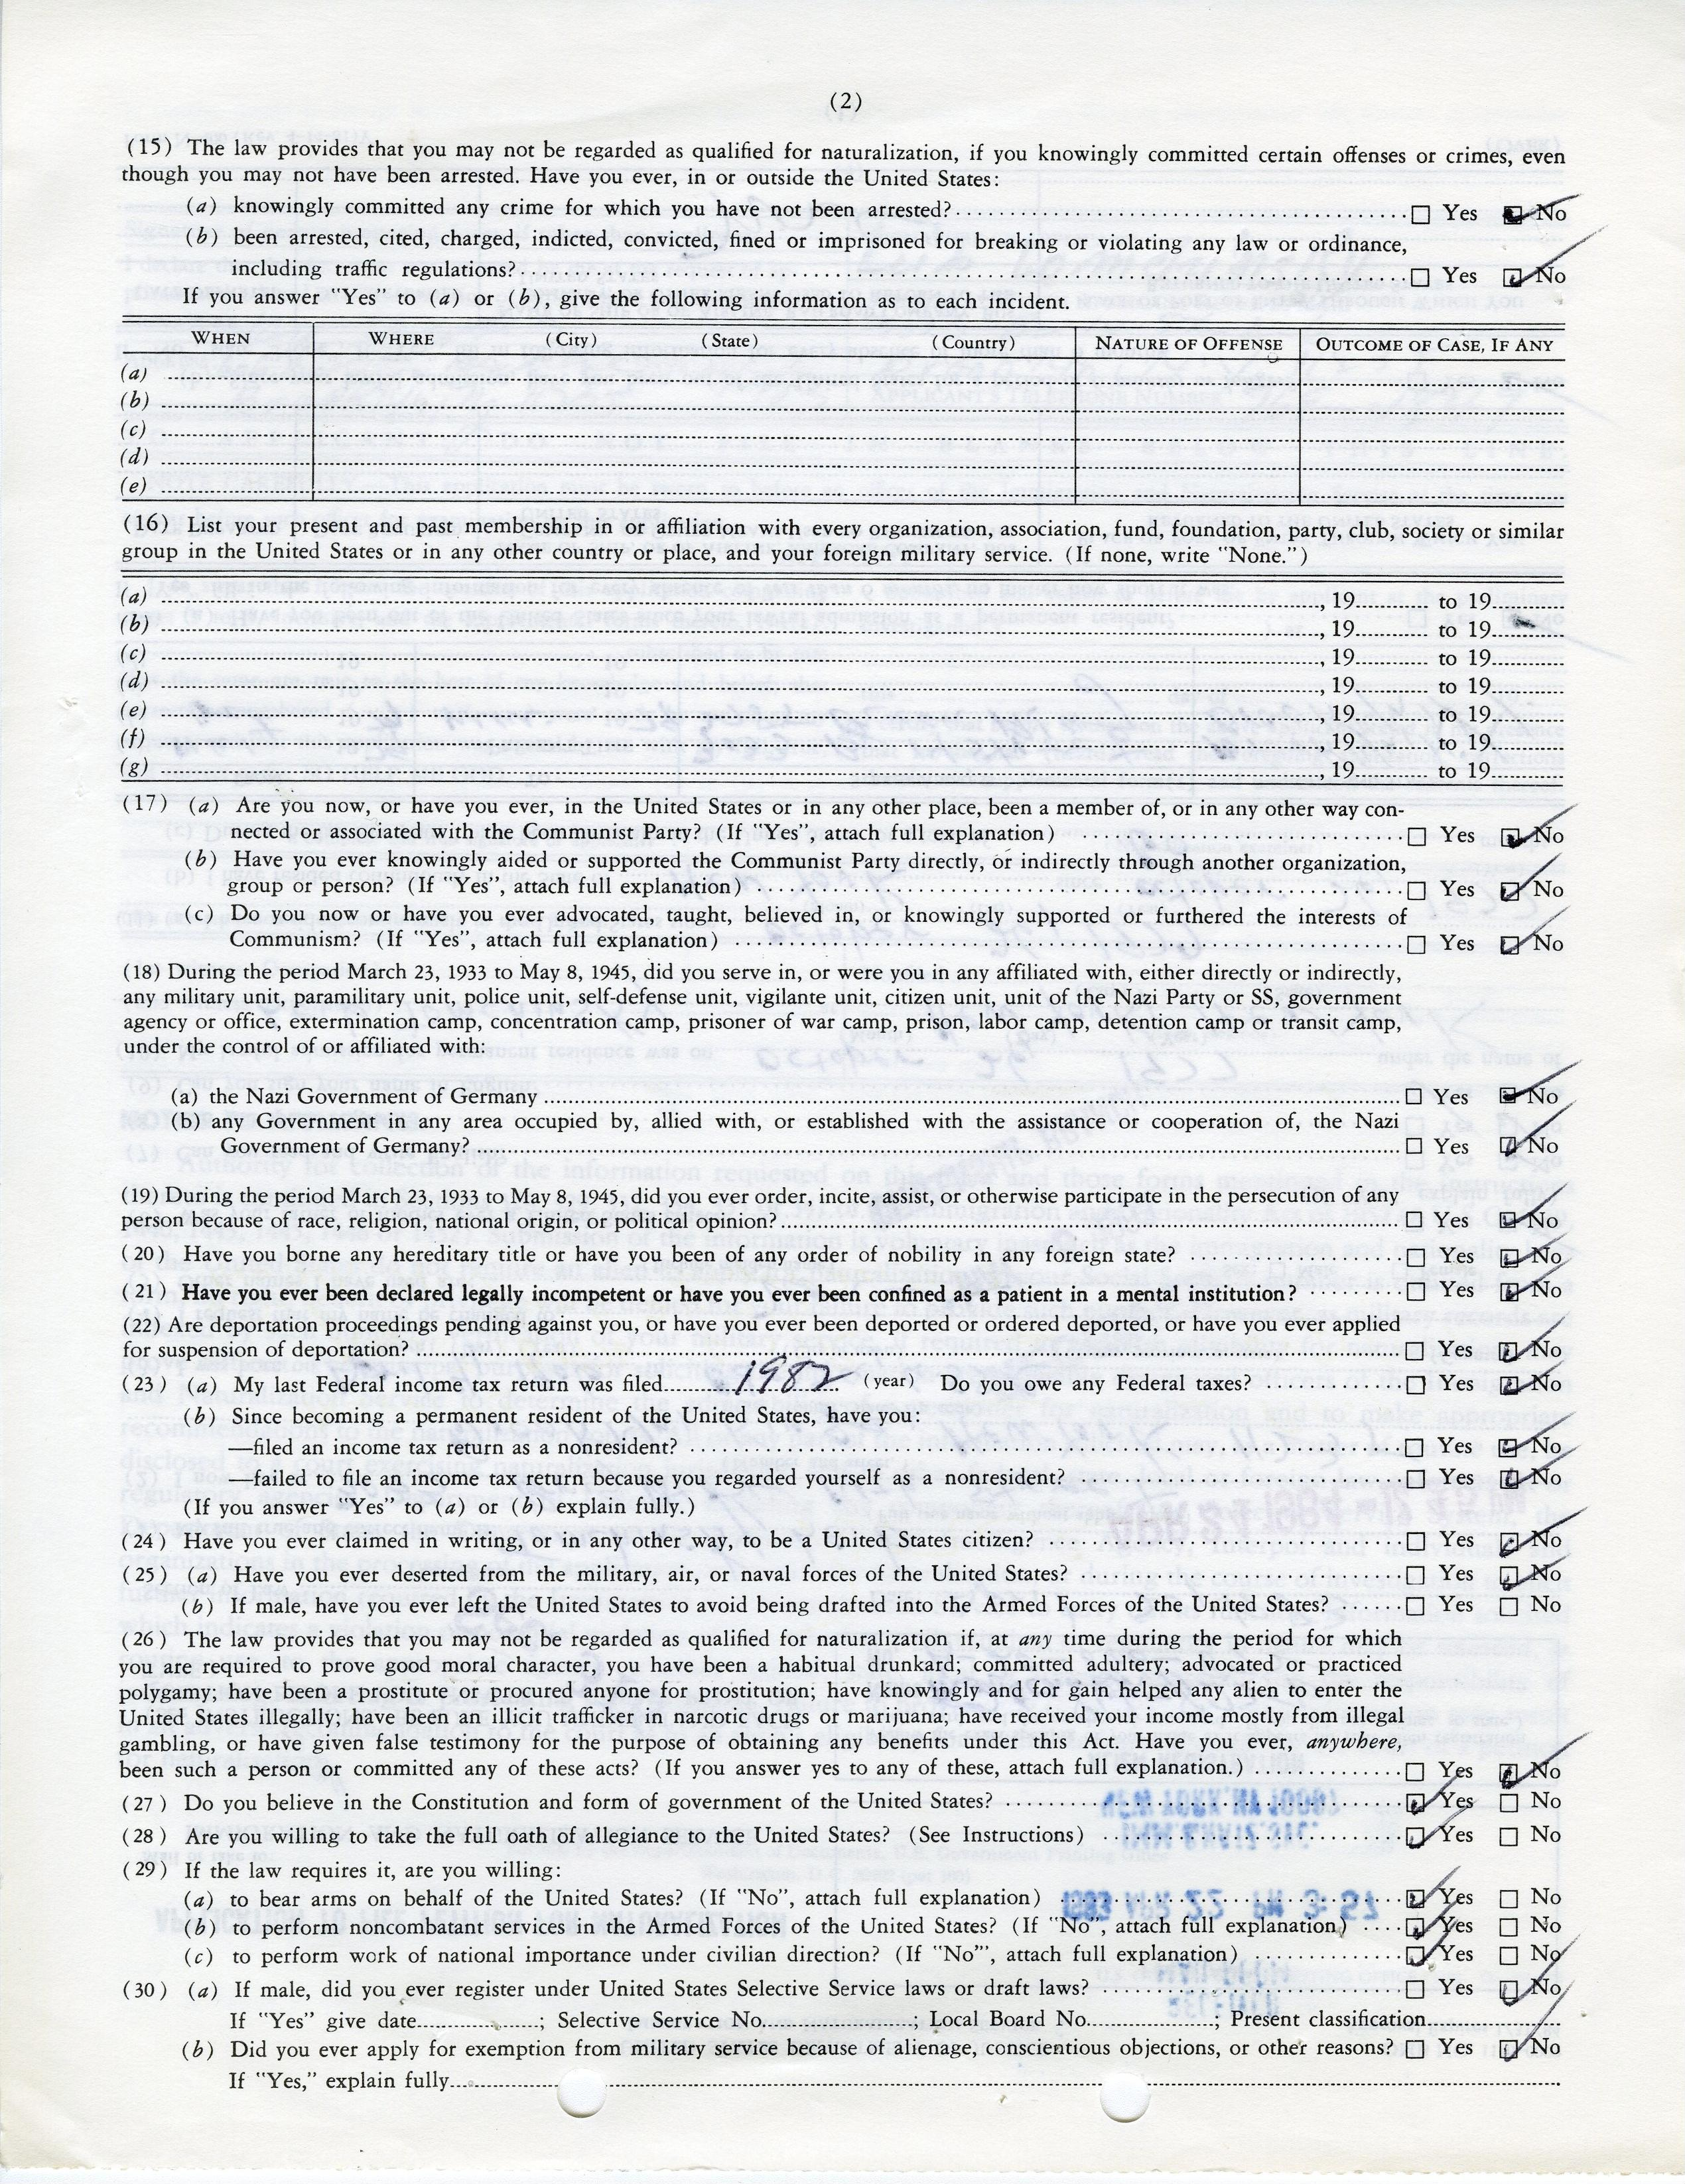 (2)
(15) The law provides that you may not be regarded as qualified for naturalization, if you knowingly committed certain offenses or crimes, even
though you may not have been arrested. Have you ever, in or outside the United States:
(a) knowingly committed any crime for which you have not been arrested? ☐ Yes ☑ No
(b) been arrested, cited, charged, indicted, convicted, fined or imprisoned for breaking or violating any law or ordinance,
including traffic regulations? ☐ Yes ☑ No
If you answer "Yes" to (a) or (b), give the following information as to each incident.
WHEN WHERE (City) (State) (Country) NATURE OF OFFENSE OUTCOME OF CASE, IF ANY
(a)
(b)
(c)
(d)
(e)
(16) List your present and past membership in or affiliation with every organization, association, fund, foundation, party, club, society or similar
group in the United States or in any other country or place, and your foreign military service. (If none, write "None.")
(a) , 19 to 19
(b) , 19 to 19
(c) , 19 to 19
(d) , 19 to 19
(e) , 19 to 19
(f) , 19 to 19
(g) , 19 to 19
(17) (a) Are you now, or have you ever, in the United States or in any other place, been a member of, or in any other way con-
nected or associated with the Communist Party? (If "Yes", attach full explanation) ☐ Yes ☑ No
(b) Have you ever knowingly aided or supported the Communist Party directly, or indirectly through another organization,
group or person? (If "Yes", attach full explanation) ☐ Yes ☑ No
(c) Do you now or have you ever advocated, taught, believed in, or knowingly supported or furthered the interests of
Communism? (If "Yes", attach full explanation) ☐ Yes ☑ No
(18) During the period March 23, 1933 to May 8, 1945, did you serve in, or were you in any affiliated with, either directly or indirectly,
any military unit, paramilitary unit, police unit, self-defense unit, vigilante unit, citizen unit, unit of the Nazi Party or SS, government
agency or office, extermination camp, concentration camp, prisoner of war camp, prison, labor camp, detention camp or transit camp,
under the control of or affiliated with:
(a) the Nazi Government of Germany ☐ Yes ☑ No
(b) any Government in any area occupied by, allied with, or established with the assistance or cooperation of, the Nazi
Government of Germany? ☐ Yes ☑ No
(19) During the period March 23, 1933 to May 8, 1945, did you ever order, incite, assist, or otherwise participate in the persecution of any
person because of race, religion, national origin, or political opinion? ☐ Yes ☑ No
(20) Have you borne any hereditary title or have you been of any order of nobility in any foreign state? ☐ Yes ☑ No
(21) Have you ever been declared legally incompetent or have you ever been confined as a patient in a mental institution? ☐ Yes ☑ No
(22) Are deportation proceedings pending against you, or have you ever been deported or ordered deported, or have you ever applied
for suspension of deportation? ☐ Yes ☑ No
(23) (a) My last Federal income tax return was filed 1982 (year) Do you owe any Federal taxes? ☐ Yes ☑ No
(b) Since becoming a permanent resident of the United States, have you:
—filed an income tax return as a nonresident? ☐ Yes ☑ No
—failed to file an income tax return because you regarded yourself as a nonresident? ☐ Yes ☑ No
(If you answer "Yes" to (a) or (b) explain fully.)
(24) Have you ever claimed in writing, or in any other way, to be a United States citizen? ☐ Yes ☑ No
(25) (a) Have you ever deserted from the military, air, or naval forces of the United States? ☐ Yes ☑ No
(b) If male, have you ever left the United States to avoid being drafted into the Armed Forces of the United States? ☐ Yes ☐ No
(26) The law provides that you may not be regarded as qualified for naturalization if, at any time during the period for which
you are required to prove good moral character, you have been a habitual drunkard; committed adultery; advocated or practiced
polygamy; have been a prostitute or procured anyone for prostitution; have knowingly and for gain helped any alien to enter the
United States illegally; have been an illicit trafficker in narcotic drugs or marijuana; have received your income mostly from illegal
gambling, or have given false testimony for the purpose of obtaining any benefits under this Act. Have you ever, anywhere,
been such a person or committed any of these acts? (If you answer yes to any of these, attach full explanation.) ☐ Yes ☑ No
(27) Do you believe in the Constitution and form of government of the United States? ☑ Yes ☐ No
(28) Are you willing to take the full oath of allegiance to the United States? (See Instructions) ☑ Yes ☐ No
(29) If the law requires it, are you willing:
(a) to bear arms on behalf of the United States? (If "No", attach full explanation) ☑ Yes ☐ No
(b) to perform noncombatant services in the Armed Forces of the United States? (If "No", attach full explanation) ☑ Yes ☐ No
(c) to perform work of national importance under civilian direction? (If "No"', attach full explanation) ☑ Yes ☐ No
(30) (a) If male, did you ever register under United States Selective Service laws or draft laws? ☐ Yes ☑ No
If "Yes" give date ; Selective Service No. ; Local Board No. ; Present classification
(b) Did you ever apply for exemption from military service because of alienage, conscientious objections, or other reasons? ☐ Yes ☑ No
If "Yes," explain fully